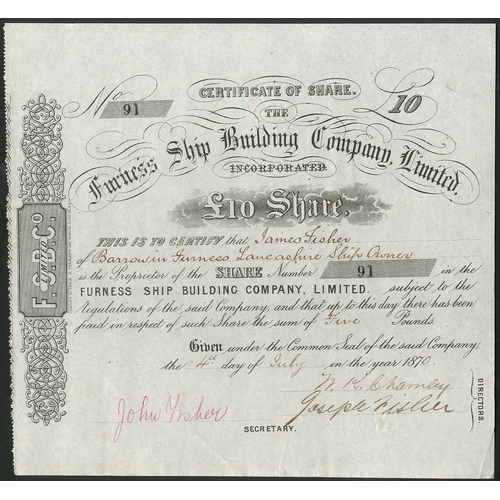 No 91
CERTIFICATE OF SHARE.
£10
THE
Furness Ship Building Company, Limited.
INCORPORATED.
£10 Share.
THIS IS TO CERTIFY that James Fisher
of Barrow in Furness Lancashire Ship Owner
is the Proprietor of the SHARE Number 91 in the
FURNESS SHIP BUILDING COMPANY, LIMITED. subject to the
Regulations of the said Company, and that up to this day there has been
paid in respect of such Share the sum of Five Pounds.
Given under the Common Seal of the said Company,
the 4th day of July in the year 1870
W. K. Charnley
Joseph Fisher
DIRECTORS.
John Fisher
SECRETARY.
F. S. B. Co.